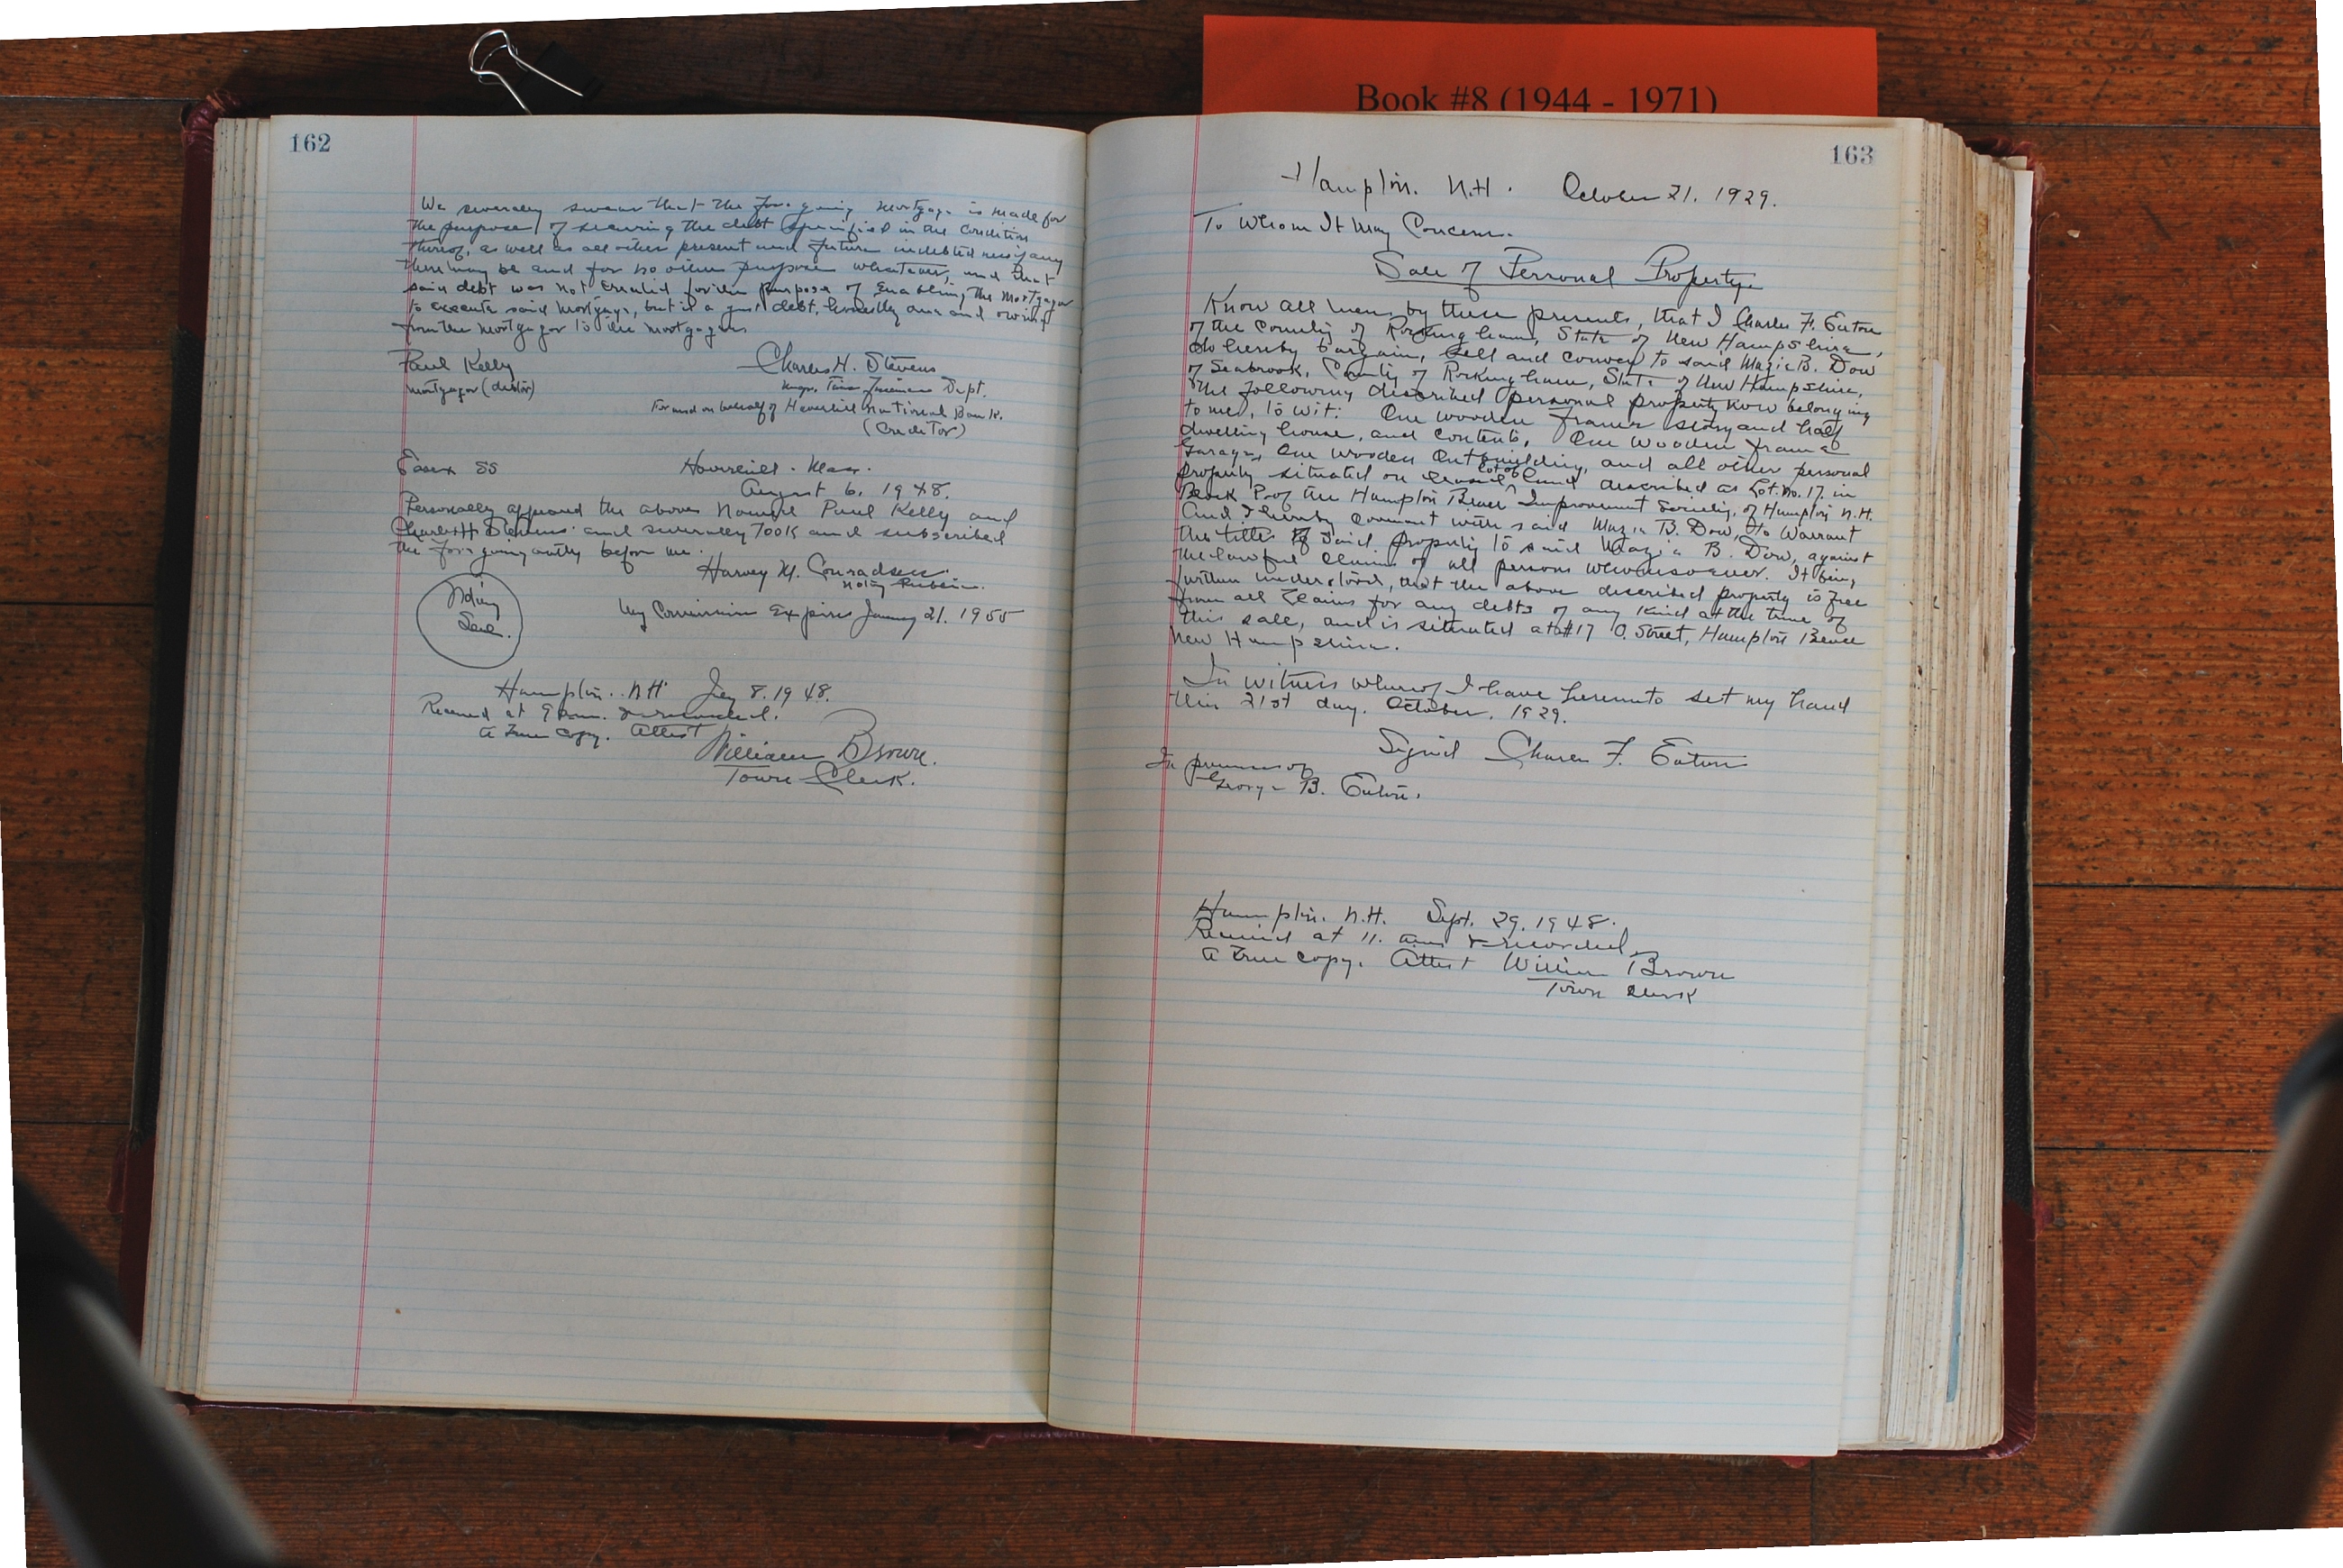 Book #8 (1944 - 1971)
162
We severally swear that the foregoing mortgage is made for
the purpose of securing the debt specified in the condition
thereof, as well as all other present and future indebtedness if any
there may be and for no other purpose whatever, and that
said debt was not created for the purpose of enabling the mortgagor
to execute said mortgage, but is a just debt, honestly due and owing
from the mortgagor to the mortgagee
Paul Kelly
mortgagor (debtor)
Charles H. Stevens
Mgr. Time Dept.
For and on behalf of Haverhill National Bank.
(Creditor)
Essex SS
Haverhill. Mass.
August 6, 1948.
Personally appeared the above named Paul Kelly and
Charles H Stevens and severally took and subscribed
the foregoing oath, before me.
Harvey M. Conradsen
Notary Public.
Notary
Seal.
My Commission Expires January 21. 1955
Hampton. N.H. 8. 1948.
Received at 9 a.m. & recorded.
A True Copy. Attest
William Brown.
Town Clerk.
163
Hampton. N.H. October 21. 1929.
To Whom It May Concern.
Sale of Personal Property.
Know all men by these presents, that I Charles F. Eaton
of the County of Rockingham, State of New Hampshire,
do hereby bargain, sell and convey to said Mazie B. Dow
of Seabrook, County of Rockingham, State of New Hampshire,
the following described personal property now belonging
to me, to wit: One wooden frame story and half
dwelling house, and contents, One wooden frame
Garage, One wooden Outbuilding, and all other personal
property situated on leased lot of land described as Lot. No. 17. in
Block P. of the Hampton Beach Improvement Society, of Hampton N.H.
And I hereby covenant with said Mazie B. Dow, to Warrant
the title of said property to said Mazie B. Dow, against
the lawful claims of all persons whomsoever. It being
further understood, that the above described property is free
from all claims for any debts of any kind at the time of
this sale, and is situated at #17 O. Street, Hampton Beach
New Hampshire.
In witness whereof I have hereunto set my hand
this 21st day. October. 1929.
Signed Charles F. Eaton
In presence of
George B. Eaton.
Hampton. N.H. Sept. 29. 1948.
Received at 11. am & recorded
A True copy. Attest William Brown
Town Clerk